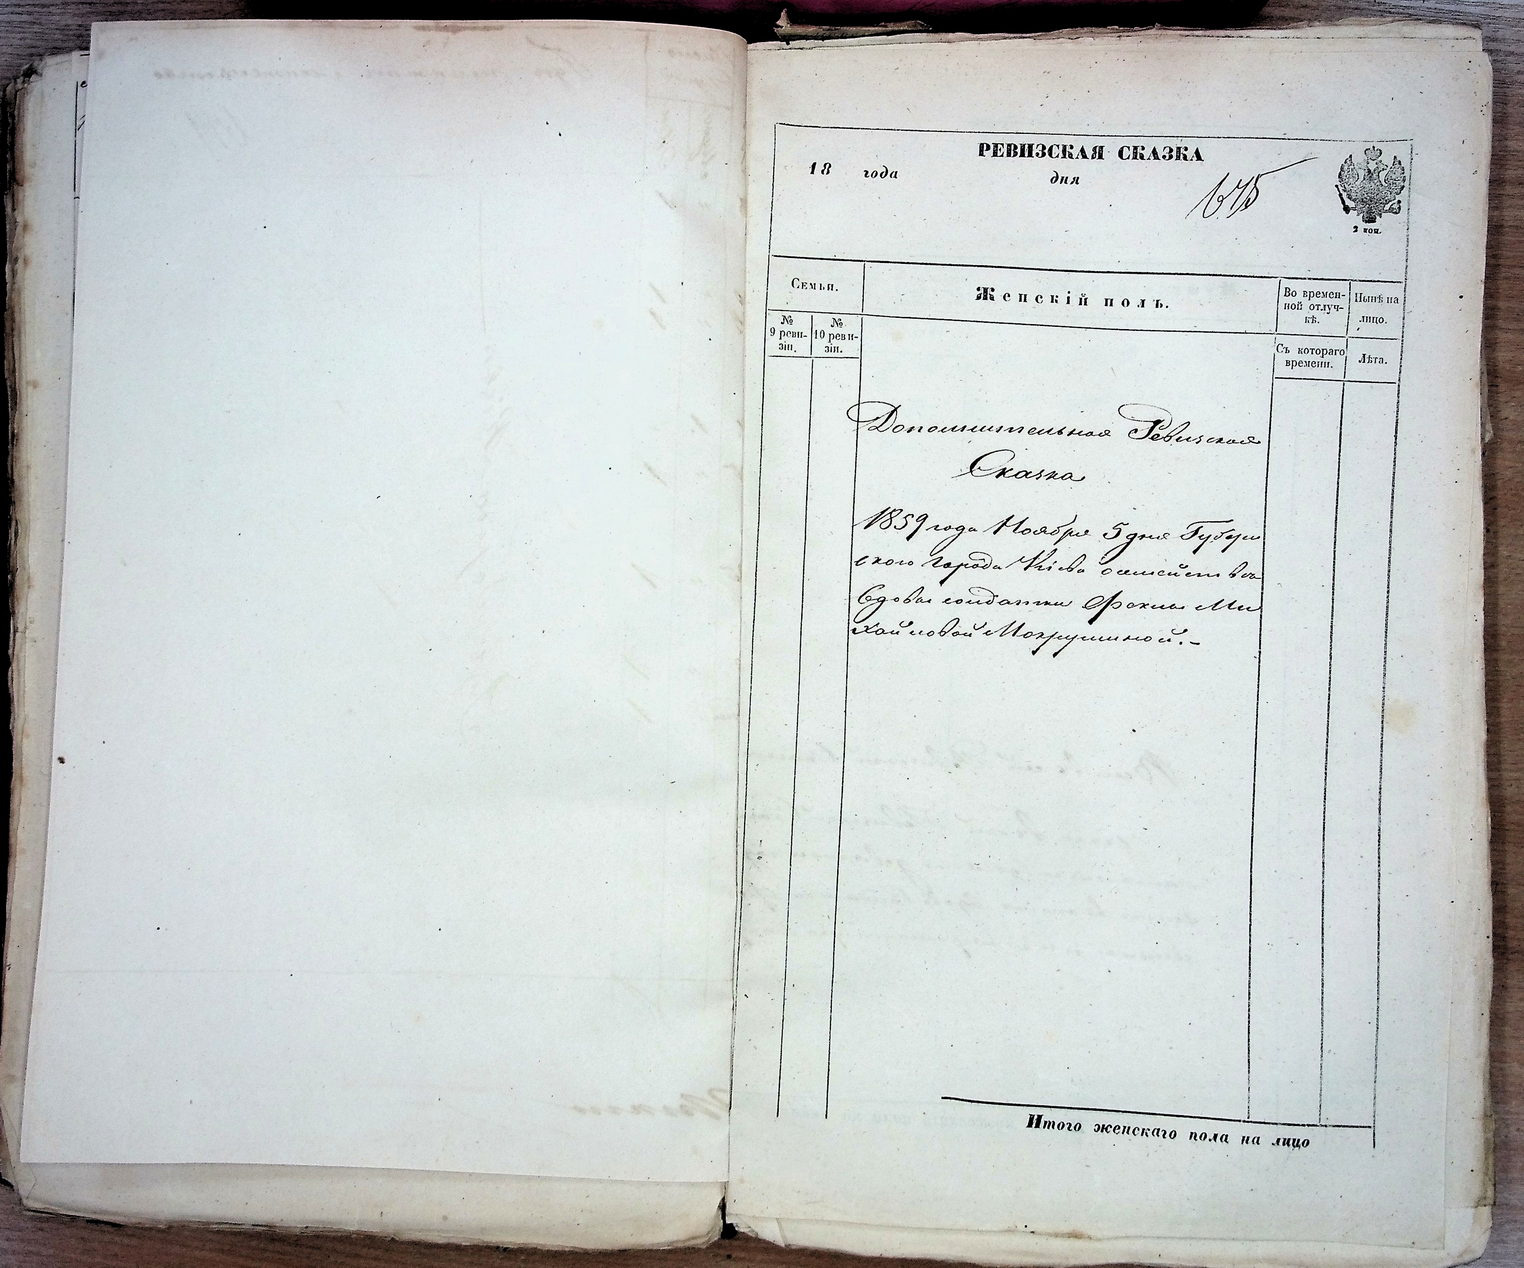 РЕВИЗСКАЯ СКАЗКА
18 года дня
675
2 коп.
Семьи.
Женскій полъ.
Во времен-
ной отлуч-
кѣ.
Нынѣ на
лицо.
№
9 реви-
зіи.
№
10 реви-
зіи.
Съ котораго
времени.
Лѣта.
Дополнительная Ревизская
Сказка
1859 года Ноября 5 дня Губерн
ского города Кіева о семействѣ
Вдовы солдатки Феклы Ми
хайловой Мокрушиной.-
Итого женскаго пола на лицо